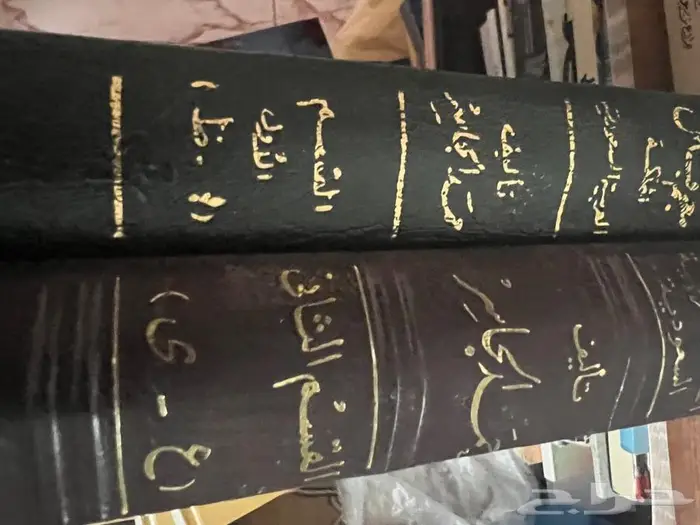 معجم قبائل
المملكة
العربية السعودية
تأليف
حمد الجاسر
القسم
الأول
السعودية
تأليف
حمد الجاسر
القسم الثاني
(ع - ى)
حراج